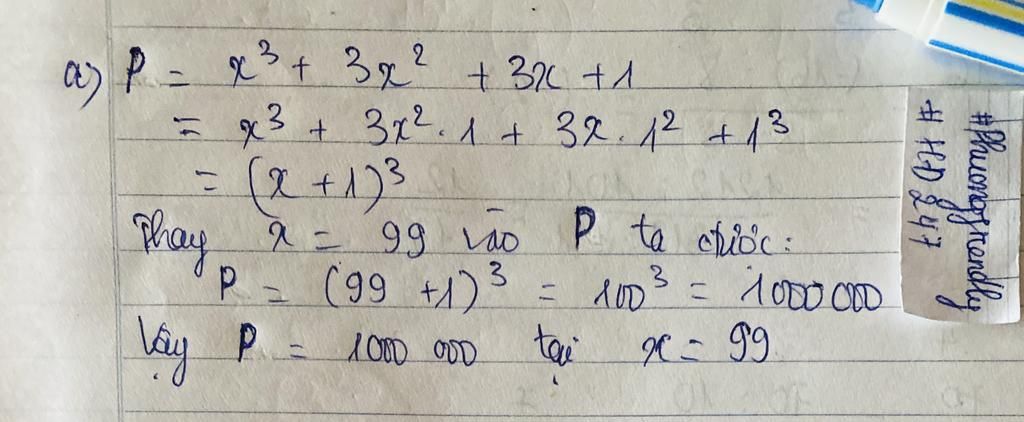 a) P = x³ + 3x² + 3x + 1
= x³ + 3x² . 1 + 3x . 1² + 1³
= (x + 1)³
Thay x = 99 vào P ta được:
P = (99 + 1)³ = 100³ = 1000 000
Vậy P = 1000 000 tại x = 99
#Phuongfriendly
# HD 247